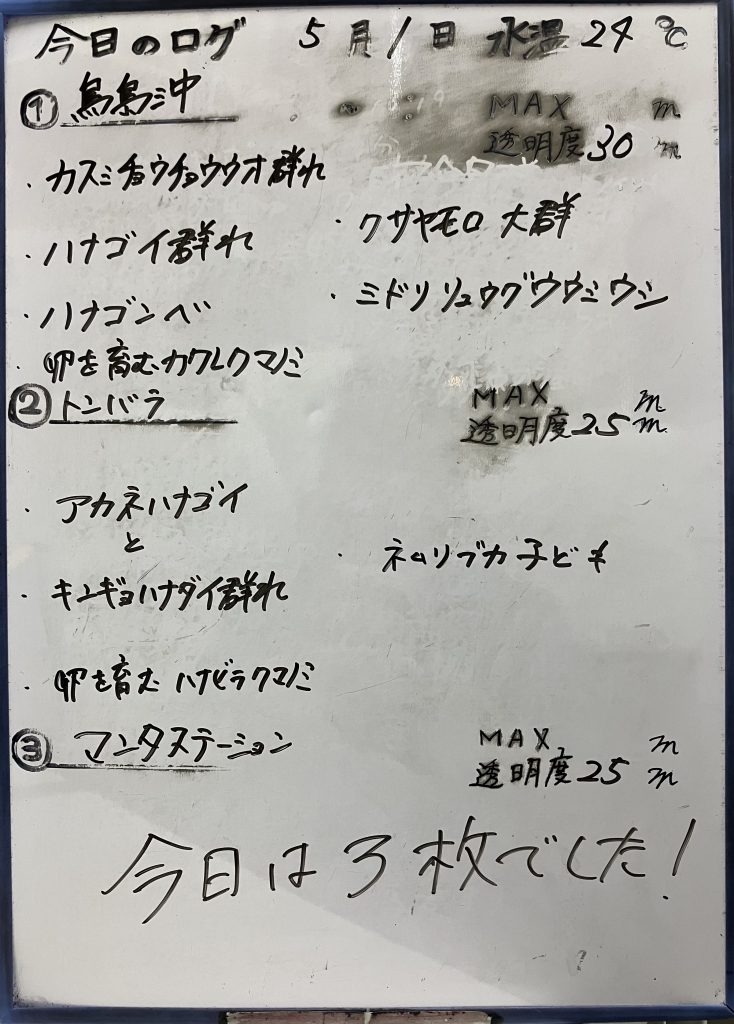 今日のログ 5月1日 水温24℃
① 鳥島沖
MAX m
透明度30m
・カスミチョウチョウウオ群れ
・クサヤモロ大群
・ハナゴイ群れ
・ミドリリュウグウウミウシ
・ハナゴンベ
・卵を育むカクレクマノミ
② トンバラ
MAX m
透明度25m
・アカネハナゴイ
と
・ネムリブカ子ども
・キンギョハナダイ群れ
・卵を育むハナビラクマノミ
③ マンタステーション
MAX m
透明度25m
今日は3枚でした!